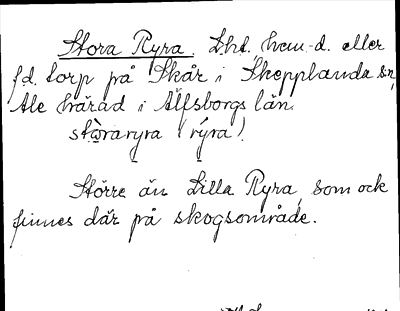 Stora Ryra. Lht. hem.-d. eller
f.d. torp på Skår i Skepplanda sn,
Ale härad i Älfsborgs län.
stòraryra (rýra).
Större än Lilla Ryra, som ock
finnes där på skogsområde.